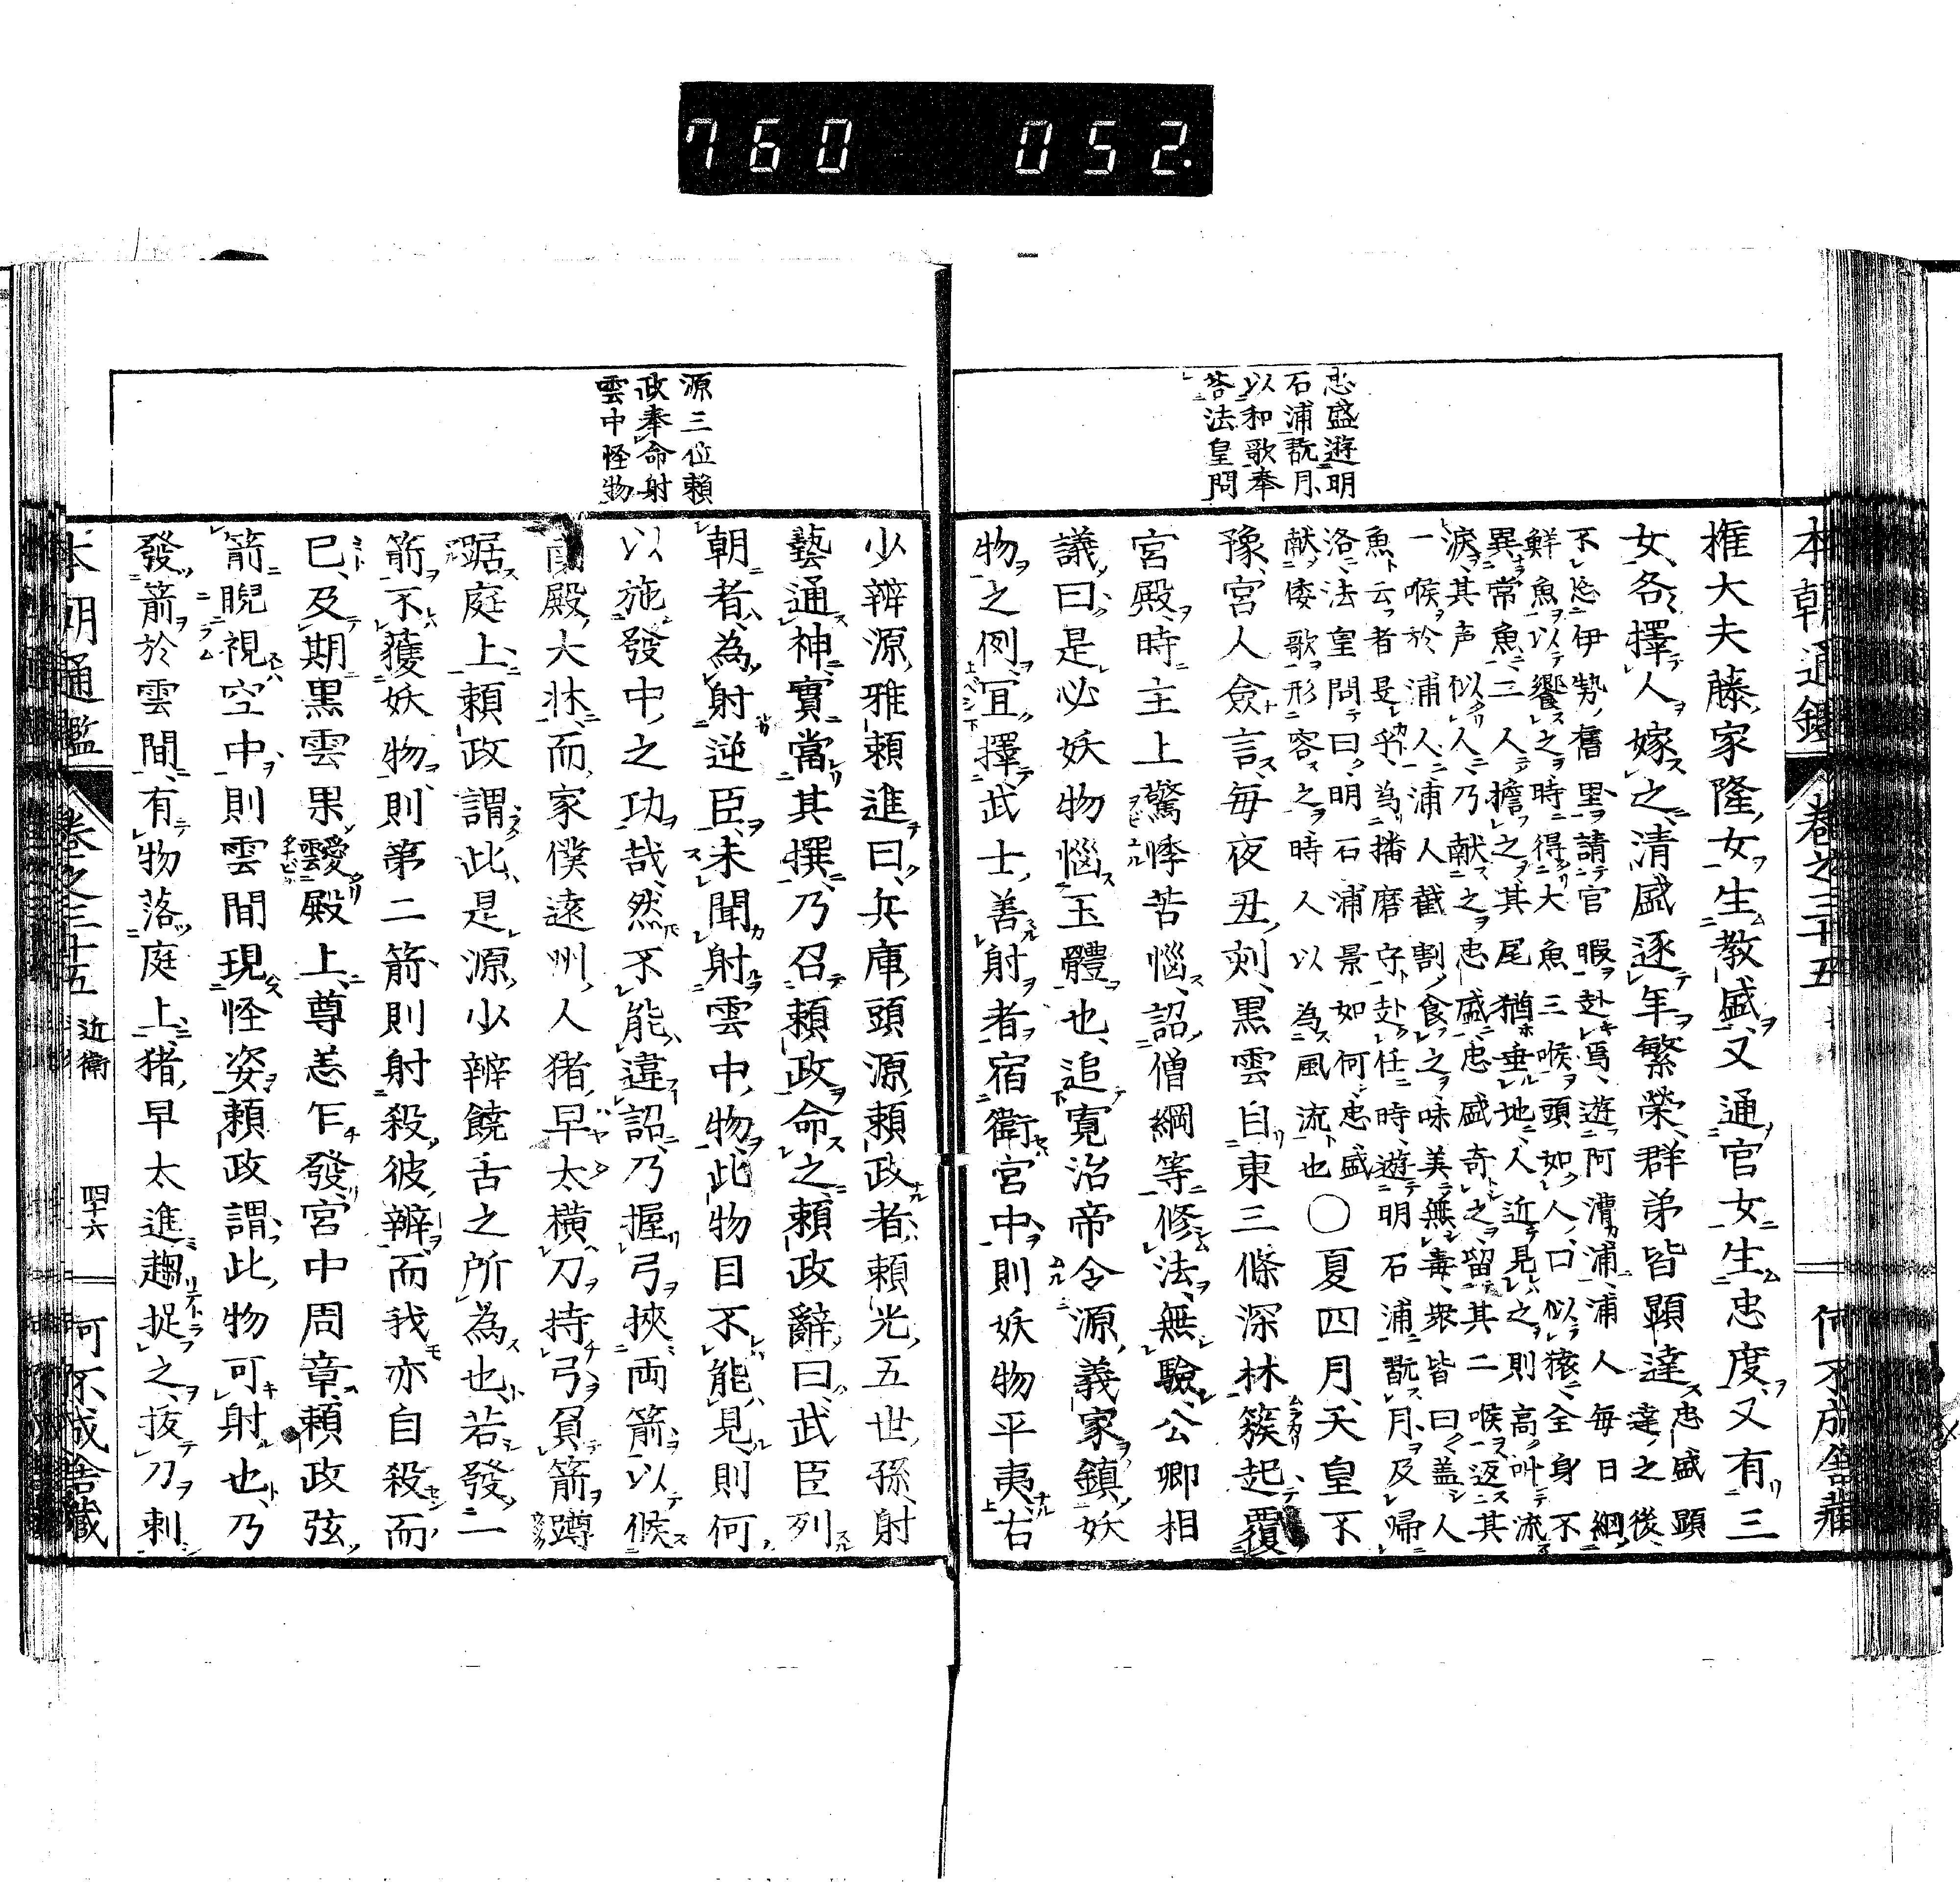 760 052
本朝通鑑 卷之三十五 何不成舎藏
忠盛遊明
石浦翫月
以和歌奉
荅法皇問
権大夫藤家隆女生教盛又通官女生忠度又有三
女各擇人嫁之清盛逐年繁榮群弟皆顕達忠盛顕
達之後
不忘伊勢舊里請官暇赴焉遊阿漕浦浦人毎日網
鮮魚以饗之時得大魚三喉頭如人口似猿全身不
異常魚二人擔之其尾猶垂地人近見之則高叫流
淚其声似人乃献之忠盛忠盛奇之留其二喉返其
一喉於浦人浦人截割食之味美無毒衆皆曰盖人
魚云者是乎為播磨守赴任時遊明石浦翫月及帰
洛法皇問曰明石浦景如何忠盛
献倭歌形容之時人以為風流也〇夏四月天皇不
豫宮人僉言毎夜丑刻黒雲自東三條深林簇起覆
宮殿時主上驚悸苦惱詔僧綱等修法無驗公卿相
議曰是必妖物惱玉體也追寛治帝令源義家鎮妖
物之例宜擇武士善射者宿衛宮中則妖物平夷右
源三位頼
政奉命射
雲中怪物
少辨源雅頼進曰兵庫頭源頼政者頼光五世孫射
藝通神實當其撰乃召頼政命之頼政辭曰武臣列
朝者為射逆臣未聞射雲中物此物目不能見則何
以施發中之功哉然不能違詔乃握弓挾両箭以候
殿大牀而家僕遠州人猪早太横刀持弓負箭蹲
踞庭上頼政謂此是源少辨饒舌之所為也若發一
箭不獲妖物則第二箭則射殺彼辨而我亦自殺而
已及期黒雲果靉靆殿上尊恙乍發宮中周章頼政弦
箭睨視空中則雲間現怪姿頼政謂此物可射也乃
發箭於雲間有物落庭上猪早太進趨捉之抜刀刺
本朝通鑑 卷之三十五 近衛 四十六 何不成舎藏